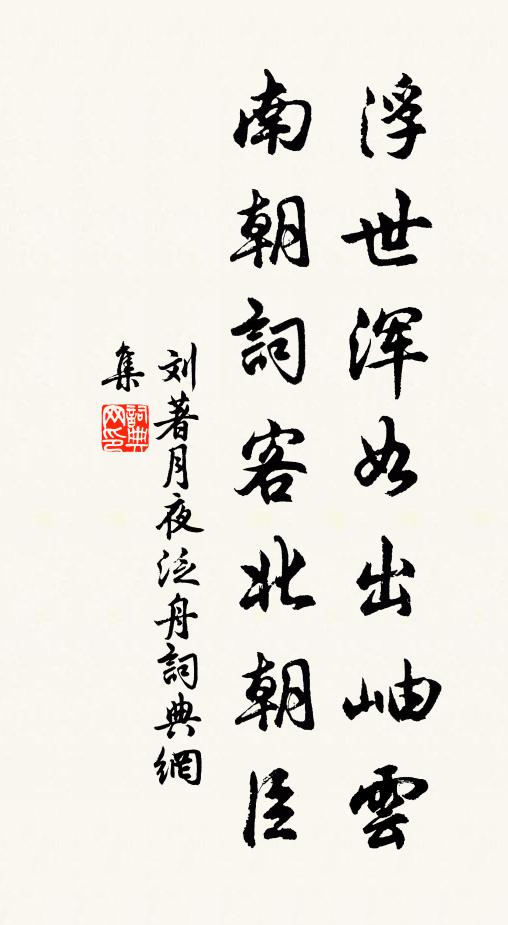 浮世浑如出岫雲
南朝詞客北朝臣
刘著月夜泛舟詞典網
集
詞典网印